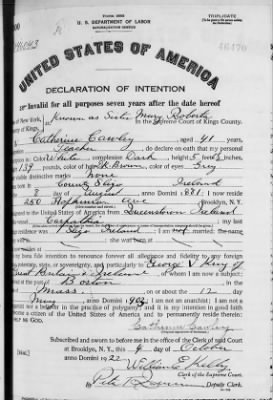 Form 2203
TRIPLICATE
U. S. DEPARTMENT OF LABOR
NATURALIZATION SERVICE
UNITED STATES OF AMERICA
DECLARATION OF INTENTION
Invalid for all purposes seven years after the date hereof
of New York, Known as Sister Mary Roberta
In the Supreme Court of Kings County.
of Kings,
Catherine Cawley, aged 41 years,
Teacher, do declare on oath that my personal
is: Color White, complexion Dark, height 5 feet inches,
139 pounds, color of hair Dk. Brown, color of eyes Grey
visible distinctive marks none
County Sligo Ireland
8 day of August, anno Domini 1881; I now reside
Ave Brooklyn, N. Y.
to the United States of America from Queenstown Ireland
my last
residence was Sligo Ireland. I am not married; the name
fide intention to renounce forever all allegiance and fidelity to any foreign
state, or sovereignty, and particularly to George V King of
Great Britain & Ireland, of whom I am now a subject;
Boston
Mass., on or about the 12 day
May, anno Domini 1902; I am not an anarchist; I am not a
nor a believer in the practice of polygamy; and it is my intention in good faith
become a citizen of the United States of America and to permanently reside therein:
HELP ME GOD.
Catherine Cawley
Subscribed and sworn to before me in the office of the Clerk of said Court
[SEAL] at Brooklyn, N. Y., this 4 day of October
anno Domini 1922
William E. Kelly
Clerk of the Supreme Court.
Deputy Clerk.